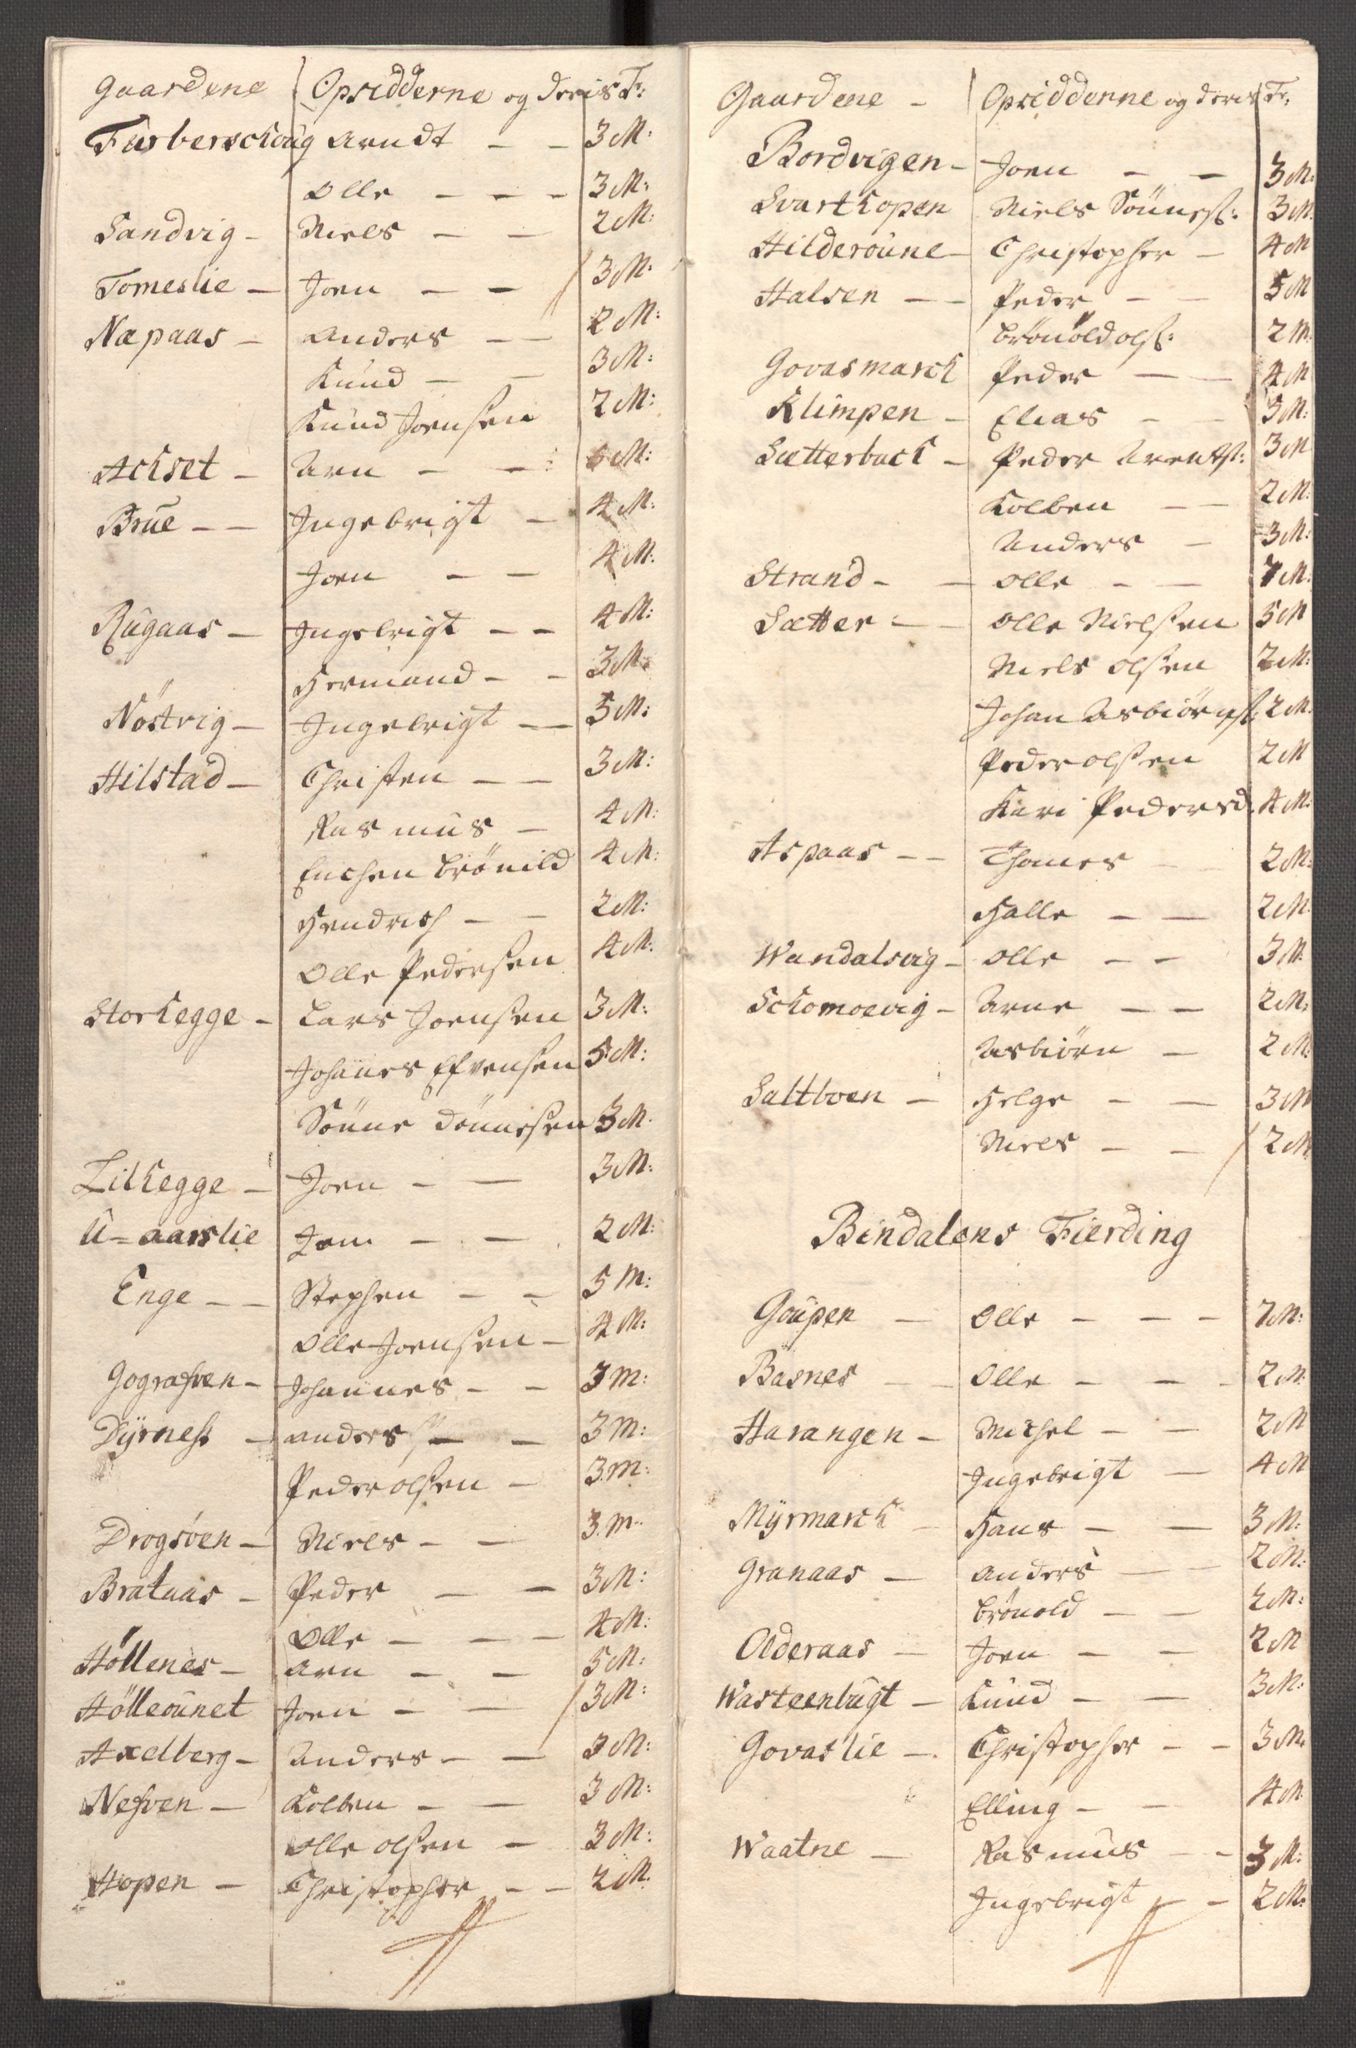 Gaardene Opsidderne og deris Fr:
Farberschoug Arndt - - 3 M:
Olle - - - 3 M:
Sandvig - Niels - - 2 M:
Tomeslie - Joen - - 3 M:
Næpaas - Anders - - 2 M:
Knud - - 3 M:
Knud Joensen 2 M:
Ackset - Arn - - 5 M:
Brue - - Ingebrigt - 4 M:
Joen - - 4 M:
Rugaas - Ingebrigt - - 4 M:
Hermand - - 3 M:
Nöstvig - Ingebrigt - 5 M:
Hilstad - Christen - - 3 M:
Rasmus - 4 M:
Enchen Brönild 4 M:
Hendrich - - 2 M:
Olle Pedersen 4 M:
Storkegge - Lars Joensen 3 M:
Johannes Efvensen 5 M:
Sönne Dönnesen 3 M:
Lilkegge - Joen - - 3 M:
U-aarslie Joen - - 2 M:
Enge - - Stephen - - 5 M:
Olle Joensen - 4 M:
Gografven - Johannes - - 3 M:
Dÿrness - Anders - - 3 M:
Peder Olsen - 3 M:
Drogsøen - Niels - - 3 M:
Brataas - Peder - - 3 M:
Olle - - - 4 M:
Höllenes - Arn - - 5 M:
Hölleounet Joen - - 3 M:
Axelberg - Anders - - 3 M:
Nefven - Kolben - - 3 M:
Olle Olsen - 3 M:
Hopen - Christopher - - 2 M.
Gaardene - Opsidderne og deris Fr:
Bordvigen - Joen - - 3 M:
Svartkopen Niels Sönnes: 3 M.
Hilderoune - Christopher - 4 M
Halsen - - Peder - - 5 M
Brönöld Ols: 2 M.
Govasmarck Peder - - 4 M
Klimpen - Elias - - 3 M:
Sætterbuck - Peder Arents: 3 M
Kolben - - 2 M.
Anders - 3 M:
Strand - - Olle - - 7 M.
Sætter - - Olle Nielsen 5 M
Niels Olsen 2 M:
Johan Asbiörns: 2 M.
Peder Olsen 2 M
Kari Pedersd. 4 M.
Aspaas - - Thomes - 2 M.
Halle - - 2 M.
Wandalsvig - Olle - - 3 M.
Schomoevig - Arne - - 2 M:
Asbiörn - 2 M:
Saltboen - Helge - - 3 M
Niels - - 2 M
Bindalens Fierding
Goupen - Olle - - - 7 M:
Basnes - Olle - - - 2 M.
Harangen - Michel - - 2 M
Ingebrigt - 4 M
Mÿrmarck - Hans - - 3 M:
Granaas - Anders - - 2 M:
Brönold - - 2 M:
Olderaas - Joen - - 2 M
Wasteenbugt - Knud - - 3 M:
Govaslie - Christopher - - 3 M:
Elling - - 4 M
Waatne - Rasmus - - 3 M:
Ingebrigt - - 2 M: